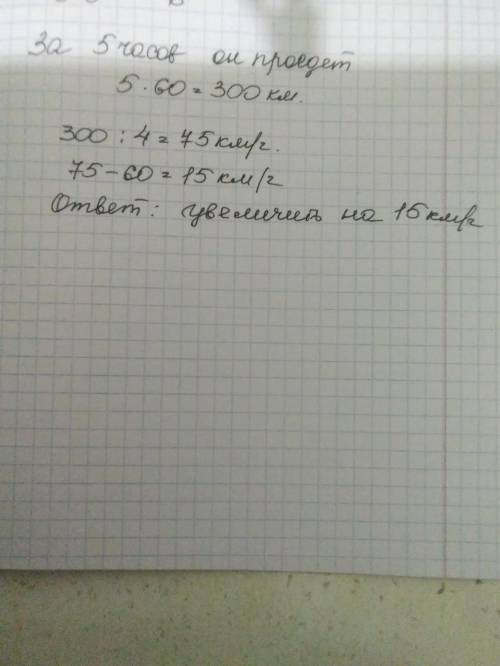 За 5 часов он проедет
5 · 60 = 300 км.
300 : 4 = 75 км/ч.
75 - 60 = 15 км/ч
Ответ: увеличить на 15 км/ч